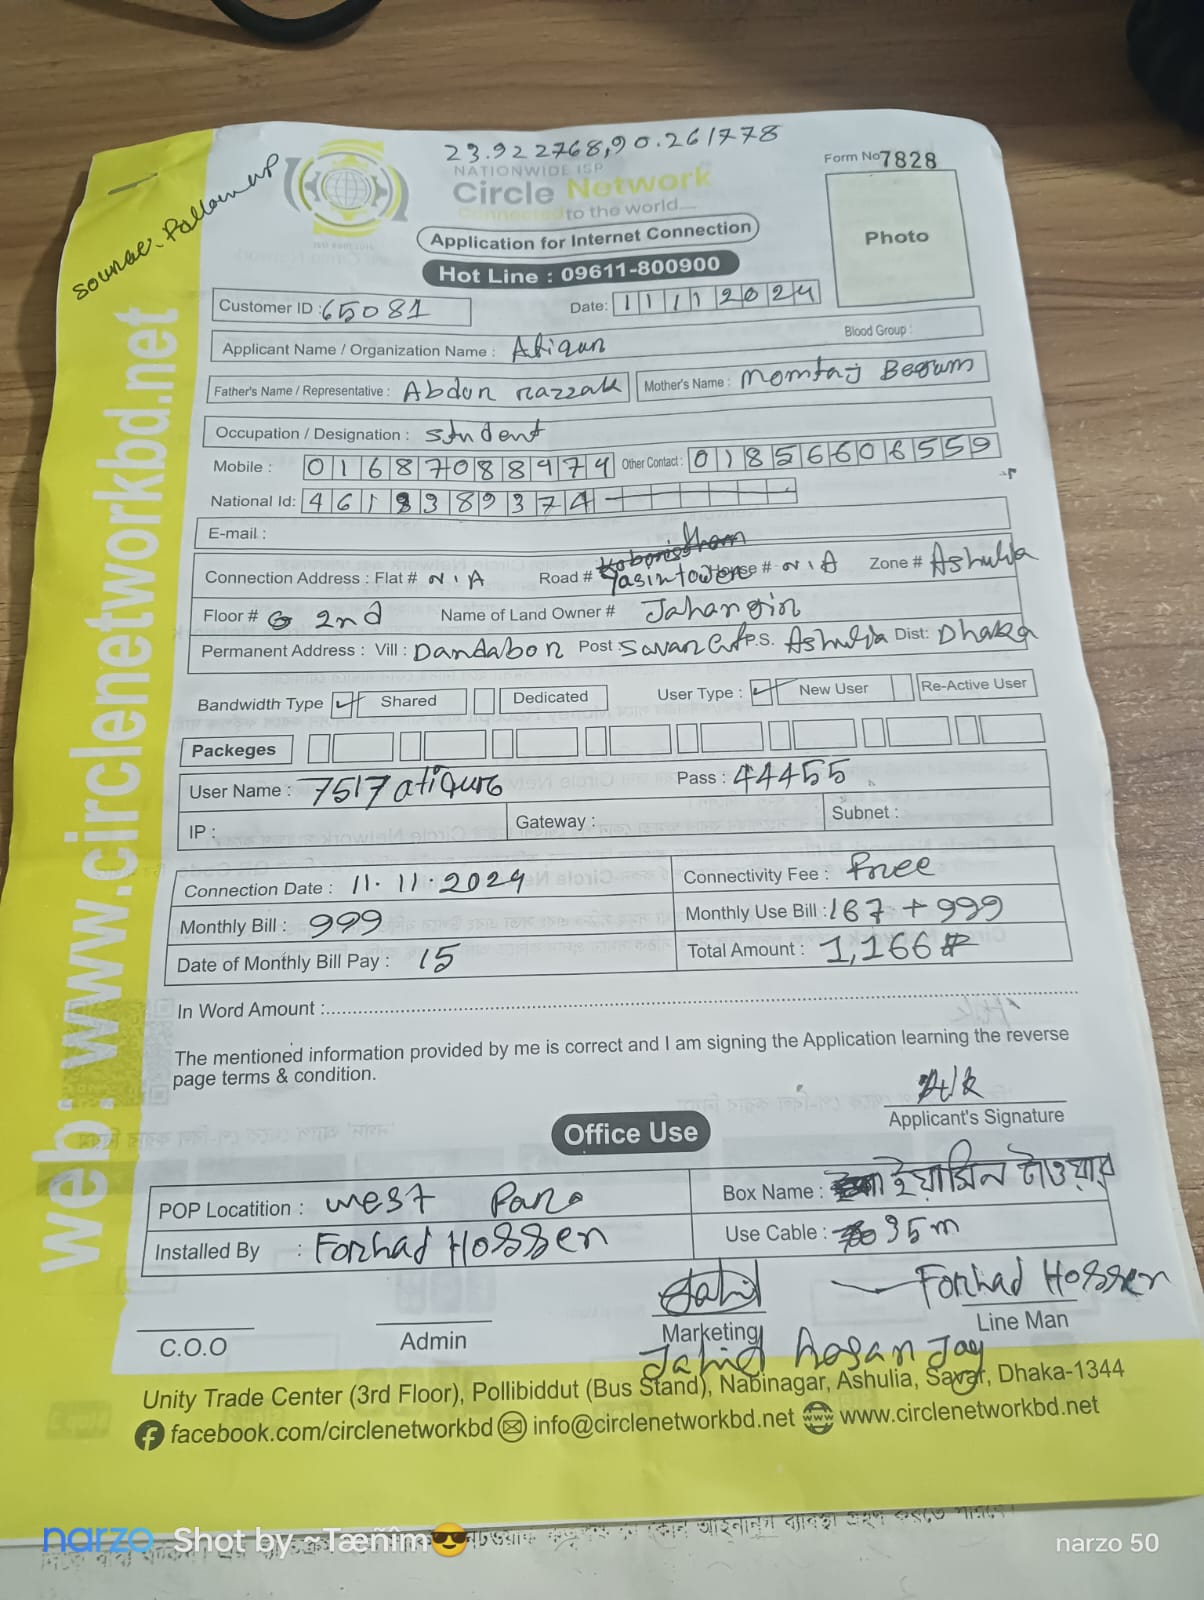 23.922768,90.261778
Source: Follow up
NATIONWIDE ISP
Form No 7828
Circle Network
Connected to the world....
Photo
Application for Internet Connection
Hot Line : 09611-800900
Customer ID : 65081 Date: 11 11 2024
Applicant Name / Organization Name : Atiqur Blood Group :
Father's Name / Representative : Abdur razzak Mother's Name : Momtaj Begum
Occupation / Designation : Student
Mobile : 01687088974 Other Contact : 01856606559
National Id: 4618389374
E-mail :
Connection Address : Flat # N.A Road # Yasin tower House # N.A Zone # Ashulia
Floor # 2nd Name of Land Owner # Jahangir
Permanent Address : Vill : Dandabor Post Savar Cant P.S. Ashulia Dist: Dhaka
Bandwidth Type Shared Dedicated User Type : New User Re-Active User
Packeges
User Name : 7517atiqur6 Pass : 44455
IP : Gateway : Subnet :
Connection Date : 11.11.2024 Connectivity Fee : Free
Monthly Bill : 999 Monthly Use Bill : 167 + 999
Date of Monthly Bill Pay : 15 Total Amount : 1,166#
In Word Amount :
The mentioned information provided by me is correct and I am signing the Application learning the reverse
page terms & condition.
Applicant's Signature
Office Use
POP Locatition : West Para Box Name : ইয়াসিন টাওয়ার
Installed By : Forhad Hossen Use Cable : 35m
Jahid Forhad Hossen
C.O.O Admin Marketing Line Man
Jahid Hasan Jay
Unity Trade Center (3rd Floor), Pollibiddut (Bus Stand), Nabinagar, Ashulia, Savar, Dhaka-1344
facebook.com/circlenetworkbd info@circlenetworkbd.net www.circlenetworkbd.net
web: www.circlenetworkbd.net
narzo Shot by ~Tæñîm😎 narzo 50